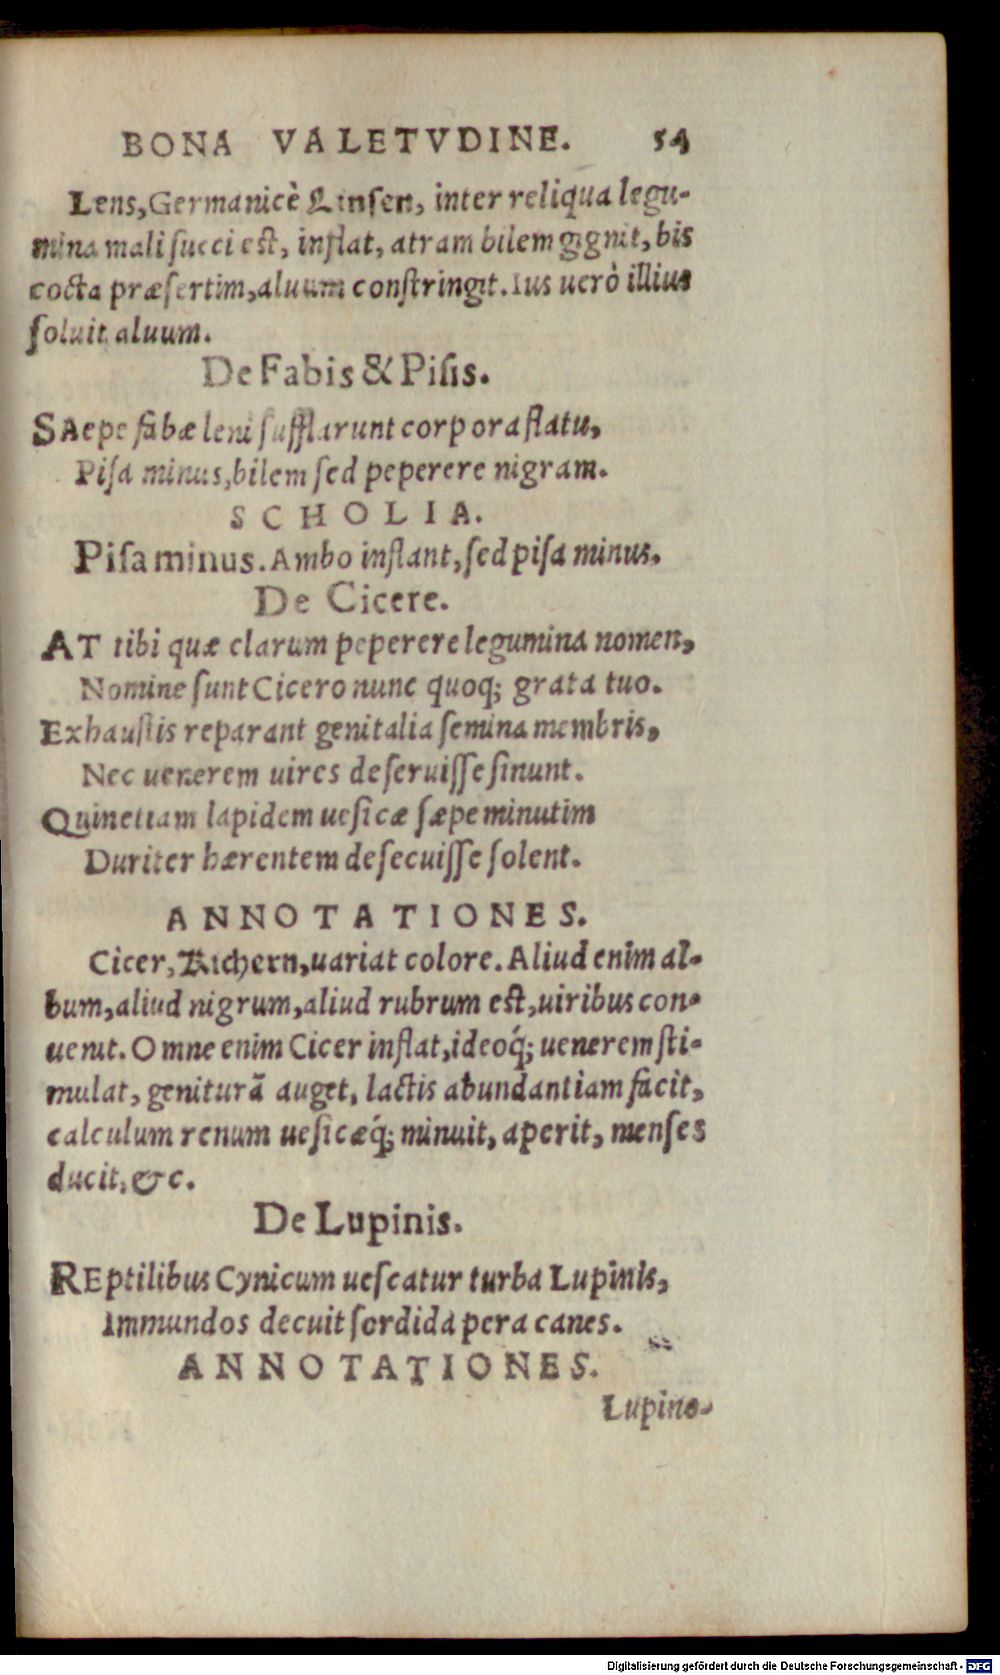 BONA VALETVDINE. 54
Lens, Germanicè Linsen, inter reliqua legu-
mina mali ſucci eſt, inflat, atram bilem gignit, bis
cocta præſertim, aluum conſtringit. Ius uerò illius
ſoluit aluum.
De Fabis & Piſis.
SAepe fabæ leni ſufflarunt corpora flatu,
Piſa minus, bilem ſed peperere nigram.
SCHOLIA.
Piſa minus. Ambo inflant, ſed piſa minus.
De Cicere.
AT tibi quæ clarum peperere legumina nomen,
Nomine ſunt Cicero nunc quoq; grata tuo.
Exhauſtis reparant genitalia ſemina membris,
Nec uenerem uires deſeruiſſe ſinunt.
Quinetiam lapidem ueſicæ ſæpe minutim
Duriter hærentem deſecuiſſe ſolent.
ANNOTATIONES.
Cicer, Kichern, uariat colore. Aliud enim al-
bum, aliud nigrum, aliud rubrum eſt, uiribus con-
uenit. Omne enim Cicer inflat, ideoq́; uenerem ſti-
mulat, geniturã auget, lactis abundantiam facit,
calculum renum ueſicæq́; minuit, aperit, menſes
ducit, &c.
De Lupinis.
REptilibus Cynicum ueſcatur turba Lupinis,
Immundos decuit ſordida pera canes.
ANNOTATIONES.
Lupino-
Digitalisierung gefördert durch die Deutsche Forschungsgemeinschaft - DFG